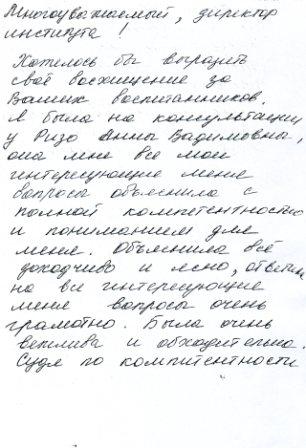 Многоуважаемый, директор
института!
Хотелось бы выразить
своё восхищение за
Ваших воспитанников.
Я была на консультации
у Ризо Анны Вадимовны,
она мне все мои
интересующие меня
вопросы объяснила с
полной компетентностью
и пониманием для
меня. Объяснила всё
доходчиво и ясно, ответила
на все интересующие
меня вопросы очень
грамотно. Была очень
вежлива и обходительна.
Судя по компитентности